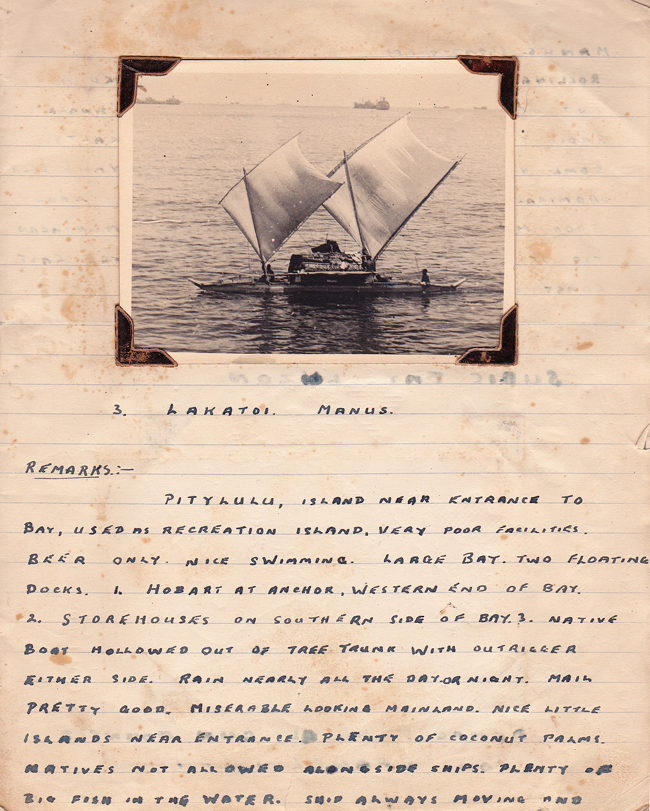 3. LAKATOI. MANUS.
REMARKS:-
PITYLULU, ISLAND NEAR ENTRANCE TO
BAY, USED AS RECREATION ISLAND, VERY POOR FACILITIES.
BEER ONLY. NICE SWIMMING. LARGE BAY. TWO FLOATING
DOCKS. 1. HOBART AT ANCHOR, WESTERN END OF BAY.
2. STOREHOUSES ON SOUTHERN SIDE OF BAY. 3. NATIVE
BOAT HOLLOWED OUT OF TREE TRUNK WITH OUTRIGGER
EITHER SIDE. RAIN NEARLY ALL THE DAY OR NIGHT. MAIL
PRETTY GOOD. MISERABLE LOOKING MAINLAND. NICE LITTLE
ISLANDS NEAR ENTRANCE. PLENTY OF COCONUT PALMS.
NATIVES NOT ALLOWED ALONGSIDE SHIPS. PLENTY OF
BIG FISH IN THE WATER. SHIP ALWAYS MOVING AND